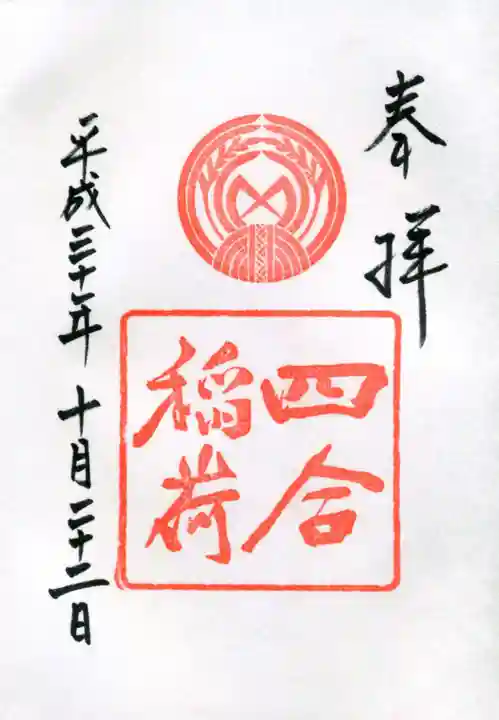 奉拝
四合
稲荷
平成三十一年十月二十二日